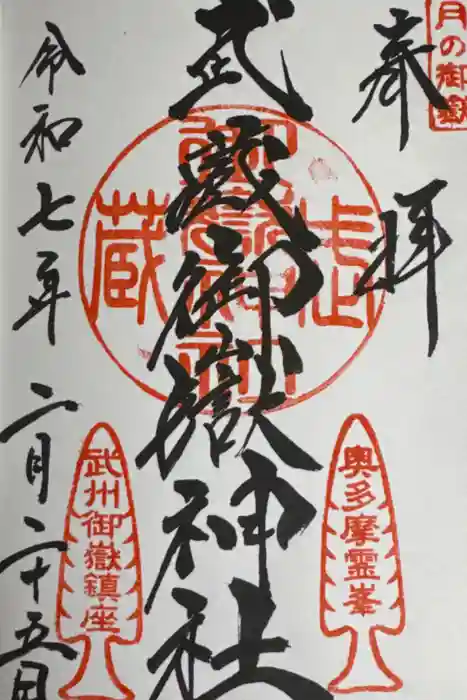 月の御嶽
奉拝
奥多摩霊峯
武蔵御嶽神社
武蔵
武州御嶽鎮座
令和七年二月二十五日